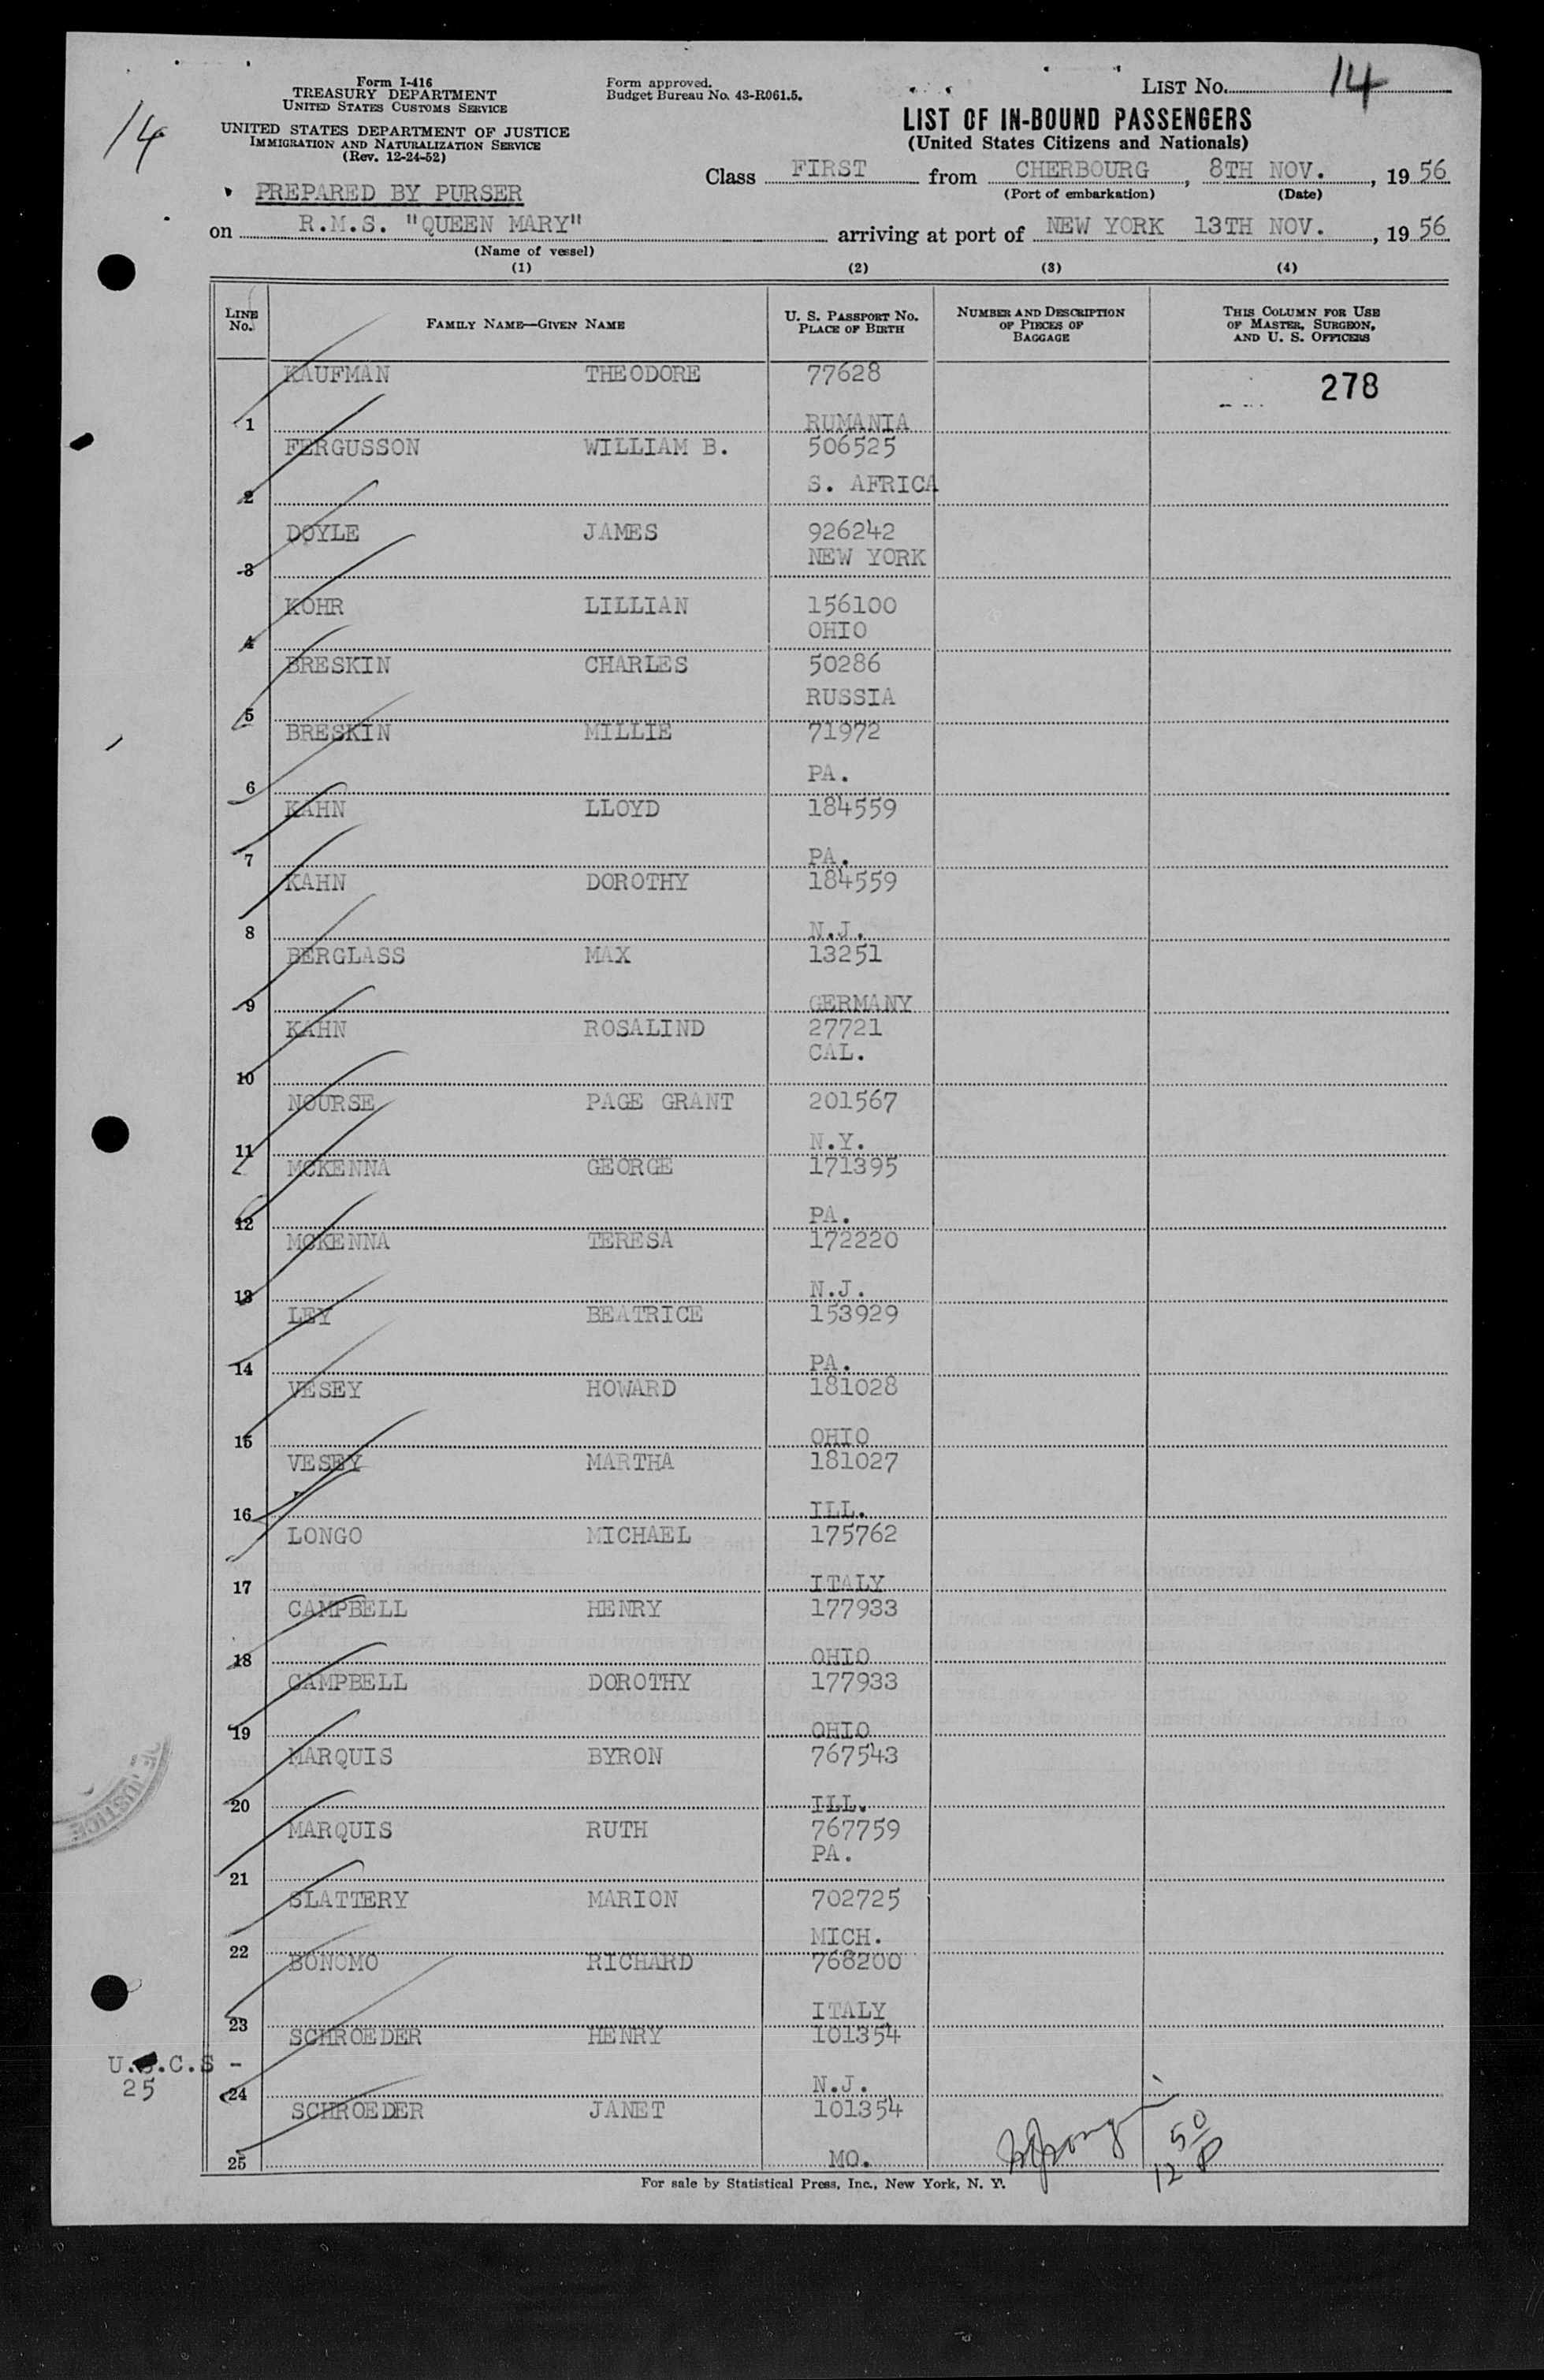 14
Form I-416
TREASURY DEPARTMENT
UNITED STATES CUSTOMS SERVICE
UNITED STATES DEPARTMENT OF JUSTICE
IMMIGRATION AND NATURALIZATION SERVICE
(Rev. 12-24-52)
Form approved.
Budget Bureau No. 43-R061.5.
LIST No. 14
LIST OF IN-BOUND PASSENGERS
(United States Citizens and Nationals)
PREPARED BY PURSER
Class FIRST from CHERBOURG, 8TH NOV., 1956
(Port of embarkation) (Date)
on R.M.S. "QUEEN MARY" arriving at port of NEW YORK 13TH NOV., 1956
(Name of vessel)
(1) (2) (3) (4)
LINE No. FAMILY NAME—GIVEN NAME U. S. PASSPORT No. PLACE OF BIRTH NUMBER AND DESCRIPTION OF PIECES OF BAGGAGE THIS COLUMN FOR USE OF MASTER, SURGEON, AND U. S. OFFICERS
KAUFMAN THEODORE 77628 278
1 RUMANIA
FERGUSSON WILLIAM B. 506525
2 S. AFRICA
DOYLE JAMES 926242
3 NEW YORK
KOHR LILLIAN 156100
4 OHIO
BRESKIN CHARLES 50286
5 RUSSIA
BRESKIN MILLIE 71972
6 PA.
KAHN LLOYD 184559
7 PA.
KAHN DOROTHY 184559
8 N.J.
BERGLASS MAX 13251
9 GERMANY
KAHN ROSALIND 27721
10 CAL.
NOURSE PAGE GRANT 201567
11 N.Y.
MCKENNA GEORGE 171395
12 PA.
MCKENNA TERESA 172220
13 N.J.
LEY BEATRICE 153929
14 PA.
VESEY HOWARD 181028
15 OHIO
VESEY MARTHA 181027
16 ILL.
LONGO MICHAEL 175762
17 ITALY
CAMPBELL HENRY 177933
18 OHIO
CAMPBELL DOROTHY 177933
19 OHIO
MARQUIS BYRON 767543
20 ILL.
MARQUIS RUTH 767759
21 PA.
SLATTERY MARION 702725
22 MICH.
BONOMO RICHARD 768200
23 ITALY
SCHROEDER HENRY 101354
U. .C.S -
25
24 N.J.
SCHROEDER JANET 101354
25 MO.
12 50
For sale by Statistical Press, Inc., New York, N. Y.
JUSTICE